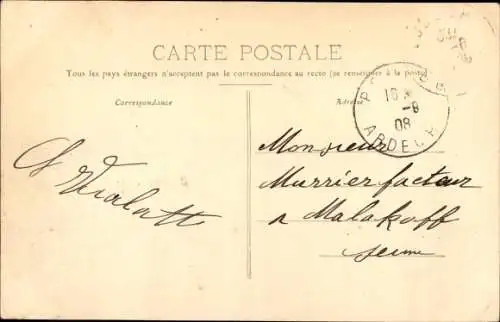 CARTE POSTALE
Tous les pays étrangers n'acceptent pas la correspondance au recto (se renseigner à la poste)
Correspondance
Adresse
16
-9
08
ARDECHE
Monsieur
Murrier facteur
a Malakoff
seine